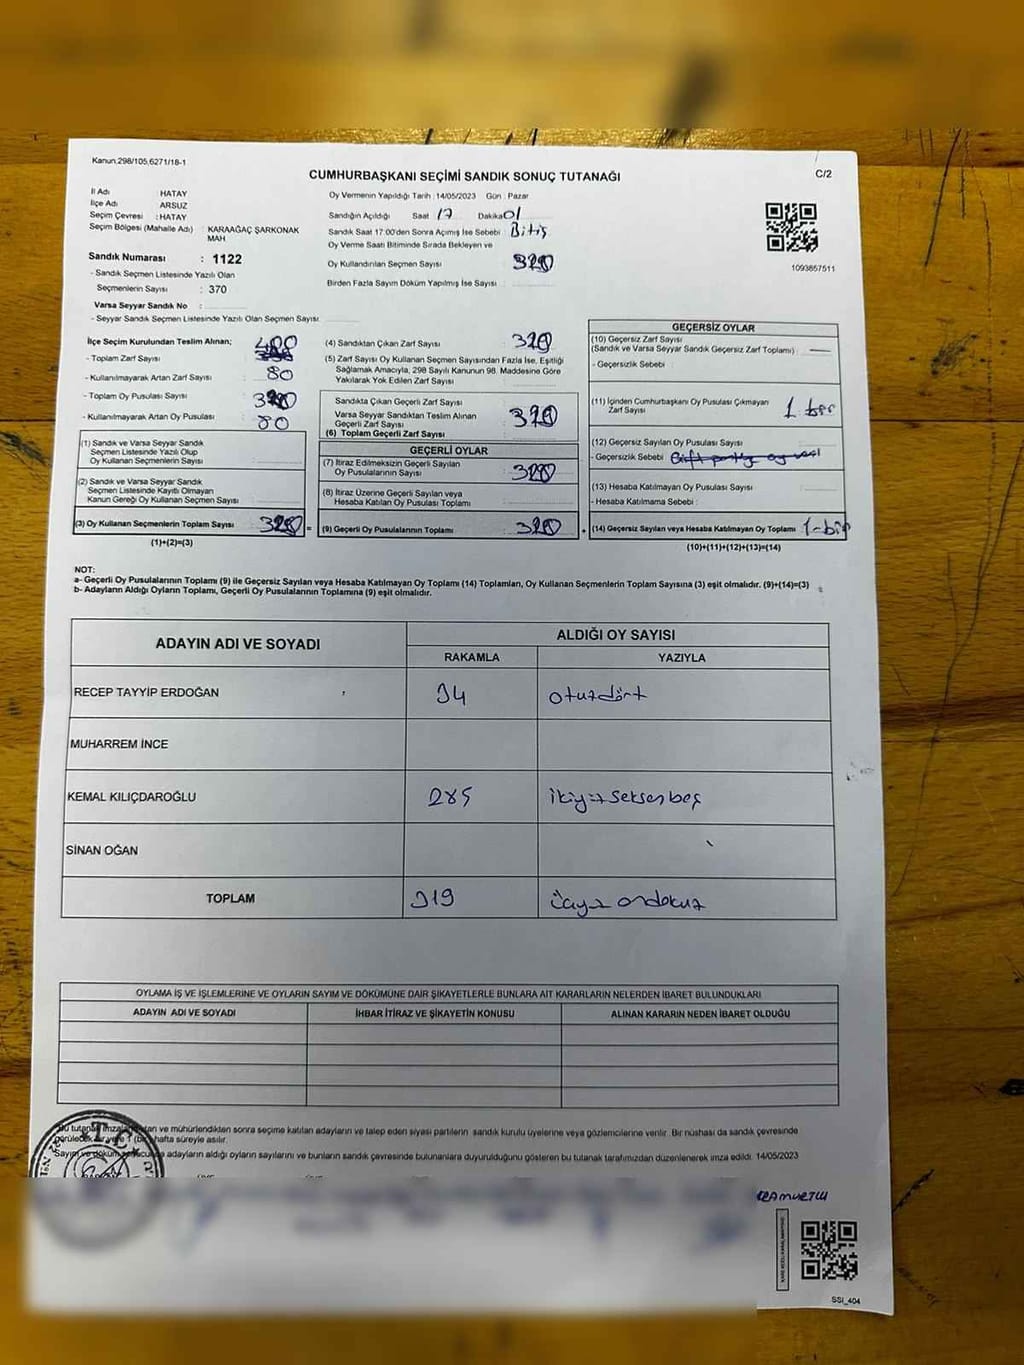 Kanun.298/105,6271/18-1
CUMHURBAŞKANI SEÇİMİ SANDIK SONUÇ TUTANAĞI
C/2
İl Adı : HATAY
İlçe Adı : ARSUZ
Seçim Çevresi : HATAY
Seçim Bölgesi (Mahalle Adı) : KARAAĞAÇ ŞARKONAK
MAH
Sandık Numarası : 1122
- Sandık Seçmen Listesinde Yazılı Olan
Seçmenlerin Sayısı : 370
Varsa Seyyar Sandık No :
- Seyyar Sandık Seçmen Listesinde Yazılı Olan Seçmen Sayısı:
Oy Vermenin Yapıldığı Tarih : 14/05/2023 Gün : Pazar
Sandığın Açıldığı Saat 17 Dakika 01
Sandık Saat 17:00'den Sonra Açımış İse Sebebi : Bitiş
Oy Verme Saati Bitiminde Sırada Bekleyen ve
Oy Kullandırılan Seçmen Sayısı
Birden Fazla Sayım Döküm Yapılmış İse Sayısı :
1093857511
İlçe Seçim Kurulundan Teslim Alınan; 400
- Toplam Zarf Sayısı
- Kullanılmayarak Artan Zarf Sayısı : 80
- Toplam Oy Pusulası Sayısı
- Kullanılmayarak Artan Oy Pusulası : 80
(1) Sandık ve Varsa Seyyar Sandık
Seçmen Listesinde Yazılı Olup
Oy Kullanan Seçmenlerin Sayısı :
(2) Sandık ve Varsa Seyyar Sandık
Seçmen Listesinde Kayıtlı Olmayan
Kanun Gereği Oy Kullanan Seçmen Sayısı :
(3) Oy Kullanan Seçmenlerin Toplam Sayısı : =
(1)+(2)=(3)
(4) Sandıktan Çıkan Zarf Sayısı :
(5) Zarf Sayısı Oy Kullanan Seçmen Sayısından Fazla İse, Eşitliği
Sağlamak Amacıyla, 298 Sayılı Kanunun 98. Maddesine Göre
Yakılarak Yok Edilen Zarf Sayısı :
Sandıkta Çıkan Geçerli Zarf Sayısı :
Varsa Seyyar Sandıktan Teslim Alınan
Geçerli Zarf Sayısı :
(6) Toplam Geçerli Zarf Sayısı :
GEÇERLİ OYLAR
(7) İtiraz Edilmeksizin Geçerli Sayılan
Oy Pusulalarının Sayısı :
(8) İtiraz Üzerine Geçerli Sayılan veya
Hesaba Katılan Oy Pusulaları Toplamı :
(9) Geçerli Oy Pusulalarının Toplamı : +
GEÇERSİZ OYLAR
(10) Geçersiz Zarf Sayısı
(Sandık ve Varsa Seyyar Sandık Geçersiz Zarf Toplamı) :
- Geçersizlik Sebebi :
(11) İçinden Cumhurbaşkanı Oy Pusulası Çıkmayan
Zarf Sayısı : 1 bir
(12) Geçersiz Sayılan Oy Pusulası Sayısı :
- Geçersizlik Sebebi :
(13) Hesaba Katılmayan Oy Pusulası Sayısı :
- Hesaba Katılmama Sebebi :
(14) Geçersiz Sayılan veya Hesaba Katılmayan Oy Toplamı : 1-bir
(10)+(11)+(12)+(13)=(14)
NOT:
a- Geçerli Oy Pusulalarının Toplamı (9) ile Geçersiz Sayılan veya Hesaba Katılmayan Oy Toplamı (14) Toplamları, Oy Kullanan Seçmenlerin Toplam Sayısına (3) eşit olmalıdır. (9)+(14)=(3)
b- Adayların Aldığı Oyların Toplamı, Geçerli Oy Pusulalarının Toplamına (9) eşit olmalıdır.
ADAYIN ADI VE SOYADI
ALDIĞI OY SAYISI
RAKAMLA YAZIYLA
RECEP TAYYİP ERDOĞAN 34 otuzdört
MUHARREM İNCE
KEMAL KILIÇDAROĞLU 285 ikiyüzseksenbeş
SİNAN OĞAN
TOPLAM 319 üçyüz ondokuz
OYLAMA İŞ VE İŞLEMLERİNE VE OYLARIN SAYIM VE DÖKÜMÜNE DAİR ŞİKAYETLERLE BUNLARA AİT KARARLARIN NELERDEN İBARET BULUNDUKLARI
ADAYIN ADI VE SOYADI İHBAR İTİRAZ VE ŞİKAYETİN KONUSU ALINAN KARARIN NEDEN İBARET OLDUĞU
Bu tutanak imzalandıktan ve mühürlendikten sonra seçime katılan adayların ve talep eden siyasi partilerin sandık kurulu üyelerine veya gözlemcilerine verilir. Bir nüshası da sandık çevresinde
görülecek bir yere 1 (bir) hafta süreyle asılır.
adayların aldığı oyların sayılarını ve bunların sandık çevresinde bulunanlara duyurulduğunu gösteren bu tutanak tarafımızdan düzenlenerek imza edildi. 14/05/2023
T.C.
SSI_404